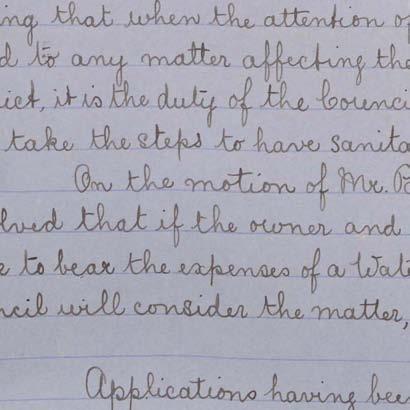 ing that when the attention of
d to any matter affecting the
ict, it is the duty of the Counci
take the steps to have sanita
On the motion of Mr. P
lved that if the owner and
e to bear the expenses of a Wat
ncil will consider the matter,
Applications having bee